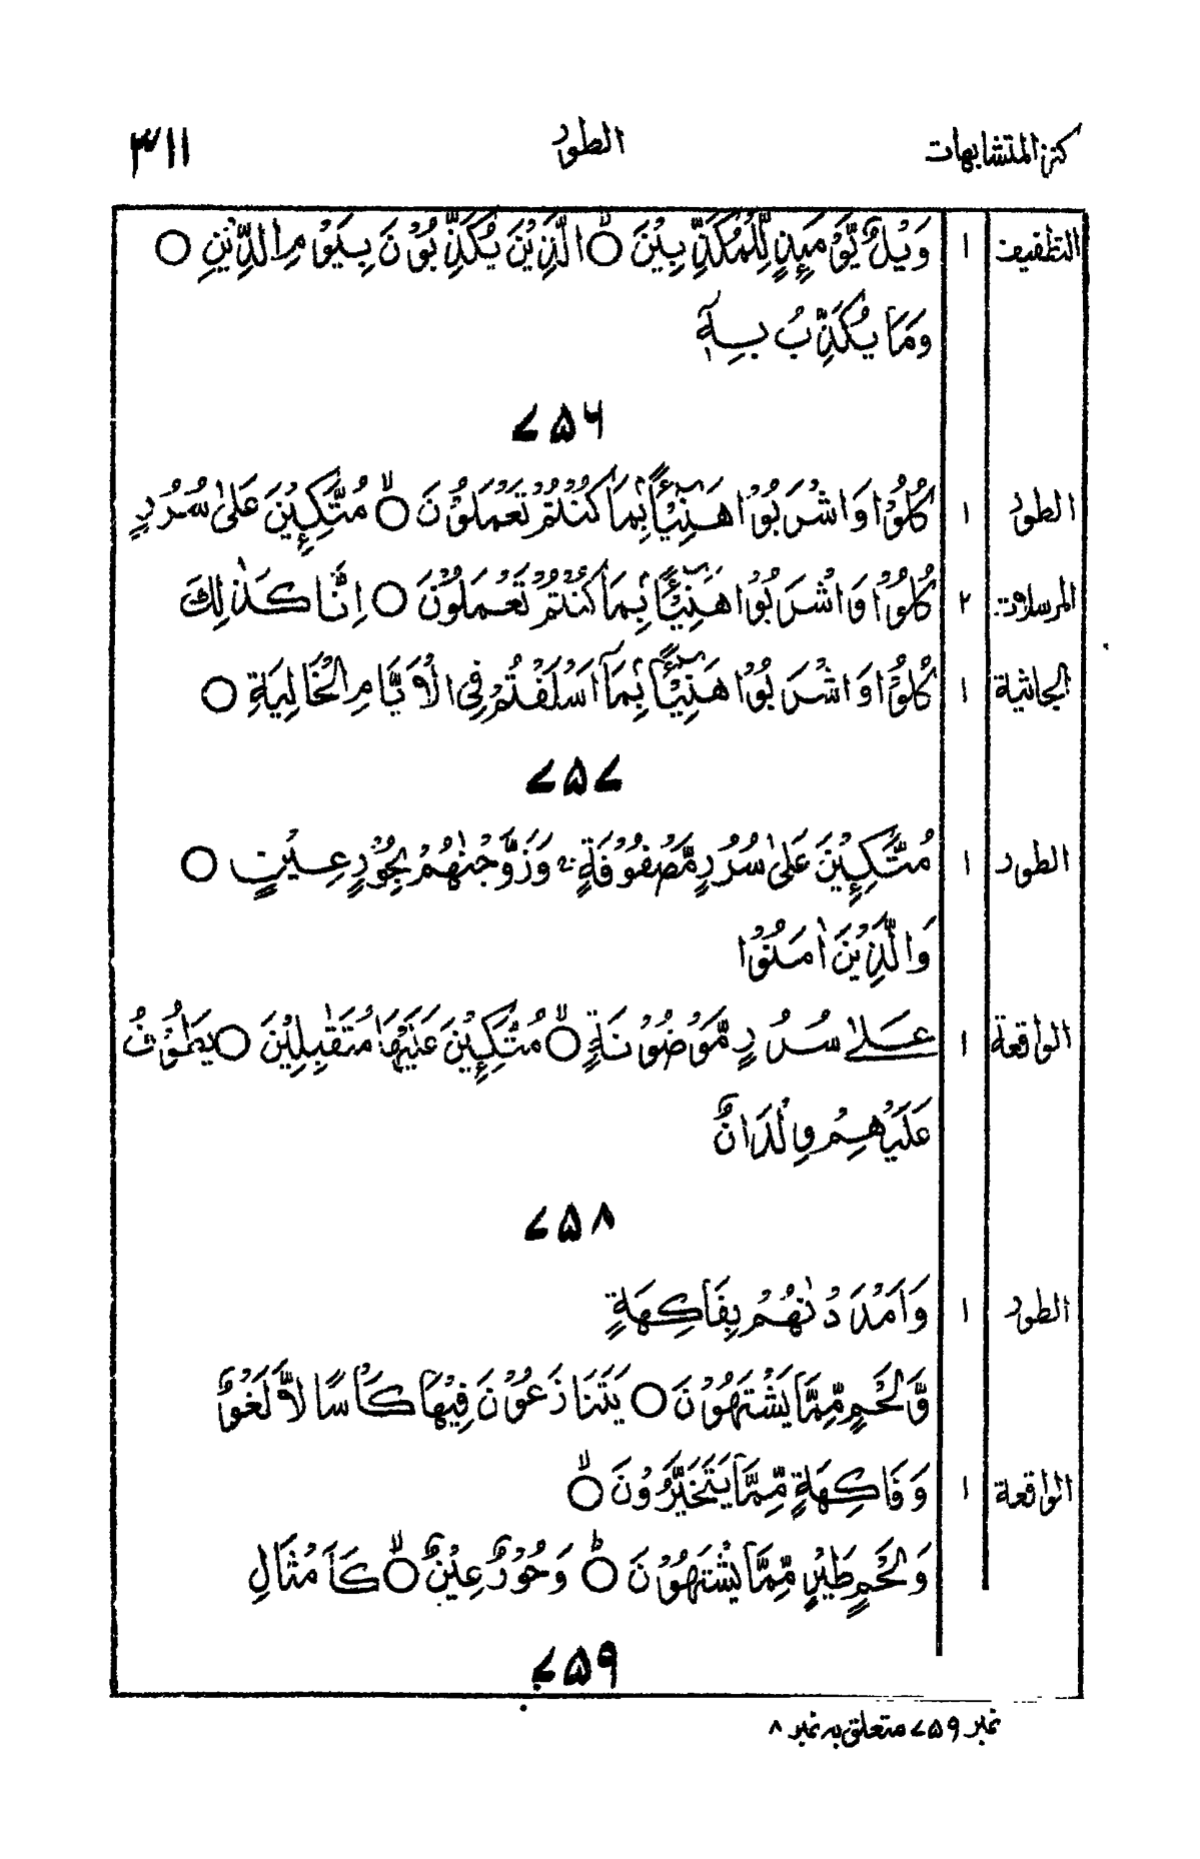 كنز المتشابهات الطور ٣١١
التطفيف ١ وَيْلٌ يَّوْمَئِذٍ لِّلْمُكَذِّبِيْنَ ○ الَّذِيْنَ يُكَذِّبُوْنَ بِيَوْمِ الدِّيْنِ ○
وَمَا يُكَذِّبُ بِهٖٓ
۷۵۶
الطور ١ كُلُوْا وَاشْرَبُوْا هَنِيْٓئًۢا بِمَا كُنْتُمْ تَعْمَلُوْنَ ○ مُتَّكِئِيْنَ عَلٰى سُرُرٍ
المرسلات ٢ كُلُوْا وَاشْرَبُوْا هَنِيْٓئًۢا بِمَا كُنْتُمْ تَعْمَلُوْنَ ○ اِنَّا كَذٰلِكَ
الجاثية ١ كُلُوْا وَاشْرَبُوْا هَنِيْٓئًۢا بِمَآ اَسْلَفْتُمْ فِى الْاَيَّامِ الْخَالِيَةِ ○
۷۵۷
الطور ١ مُتَّكِئِيْنَ عَلٰى سُرُرٍ مَّصْفُوْفَةٍ ۚ وَزَوَّجْنٰهُمْ بِحُوْرٍ عِيْنٍ ○
وَالَّذِيْنَ اٰمَنُوْا
الواقعة ١ عَلٰى سُرُرٍ مَّوْضُوْنَةٍ ○ مُتَّكِئِيْنَ عَلَيْهَا مُتَقٰبِلِيْنَ ○ يَطُوْفُ
عَلَيْهِمْ وِلْدَانٌ
۷۵۸
الطور ١ وَاَمْدَدْنٰهُمْ بِفَاكِهَةٍ
وَّلَحْمٍ مِّمَّا يَشْتَهُوْنَ ○ يَتَنَازَعُوْنَ فِيْهَا كَاْسًا لَّا لَغْوٌ
الواقعة ١ وَفَاكِهَةٍ مِّمَّا يَتَخَيَّرُوْنَ ○
وَلَحْمِ طَيْرٍ مِّمَّا يَشْتَهُوْنَ ○ وَحُوْرٌ عِيْنٌ ○ كَاَمْثَالِ
۷۵۹
نمبر ۷۵۹ متعلق به نمبر ۸